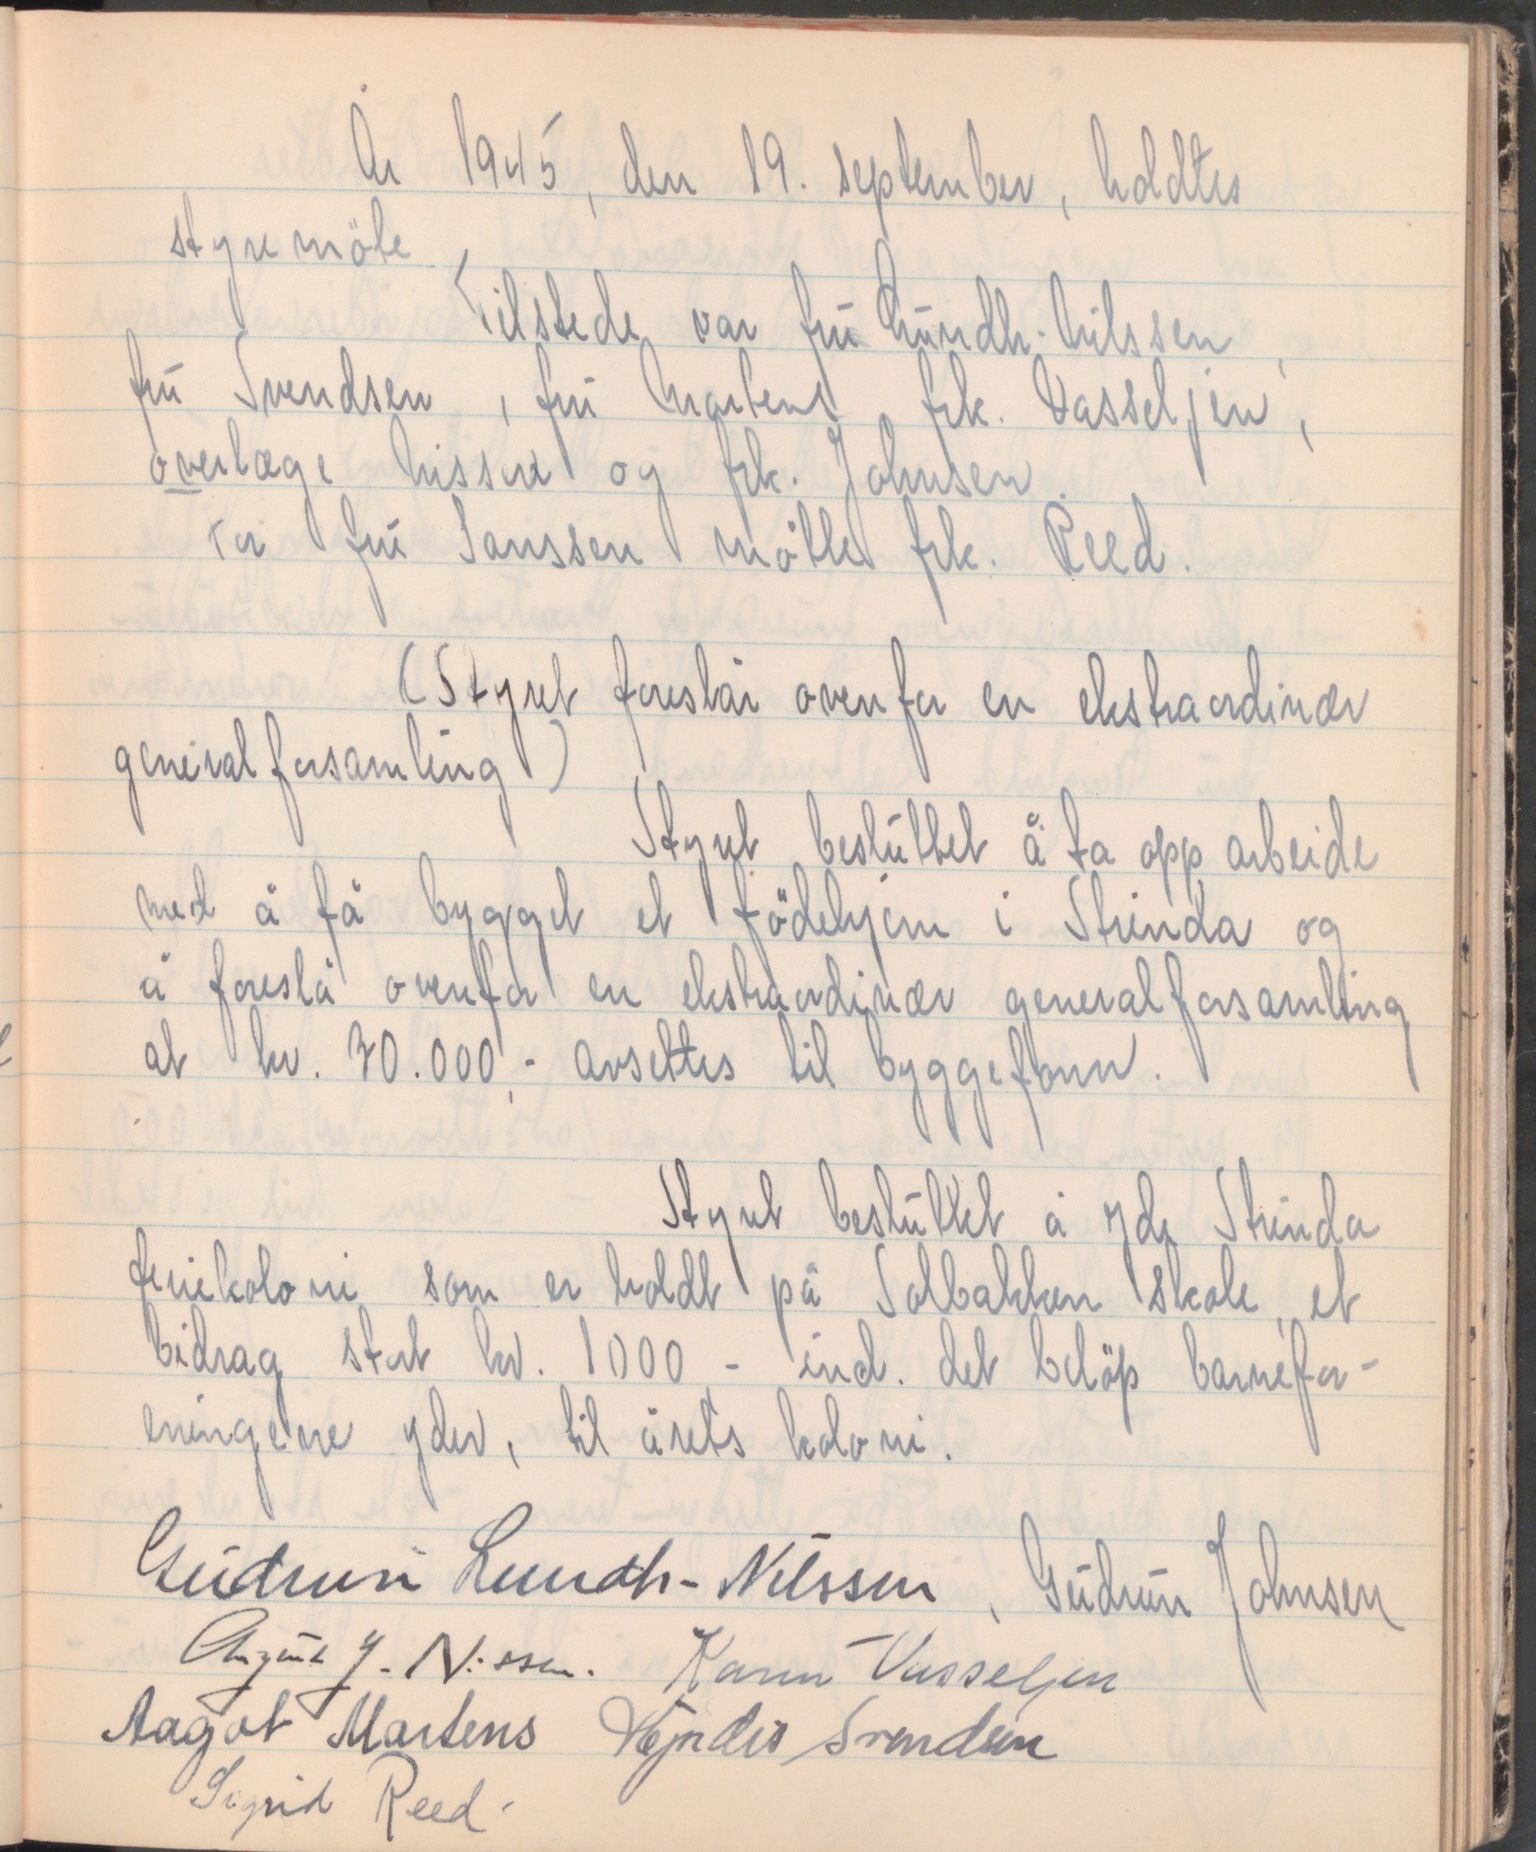 År 1945, den 19. september, holdtes
styremöte.
Tilstede var frü Lündh-Nilssen,
frü Svendsen, frü Martens frk. Vasseljen,
overlæge Nissen og frk. Johnsen.
For frü Janssen mötte frk. Reed.
(Styret foreslår ovenfor en ekstraordinær
generalforsamling)
Styret beslüttet å ta opp arbeide
med å få bygget et födehjem i Strinda og
å foreslå ovenfor en ekstraordinær generalforsamling
at kr. 70.000,- avsettes til byggefonn.
Styret beslüttet å yde Strinda
feriekoloni som er holdt på Solbakken skole, et
bidrag stort kr. 1000 - ind. det belöp barnefor-
eningene yder, til årets koloni.
Gudrun Lundh-Nilssen, Güdrün Johnsen
J. Nissen. Karin Vasseljen
Aagot Martens Svendsen
Sigrid Reed.